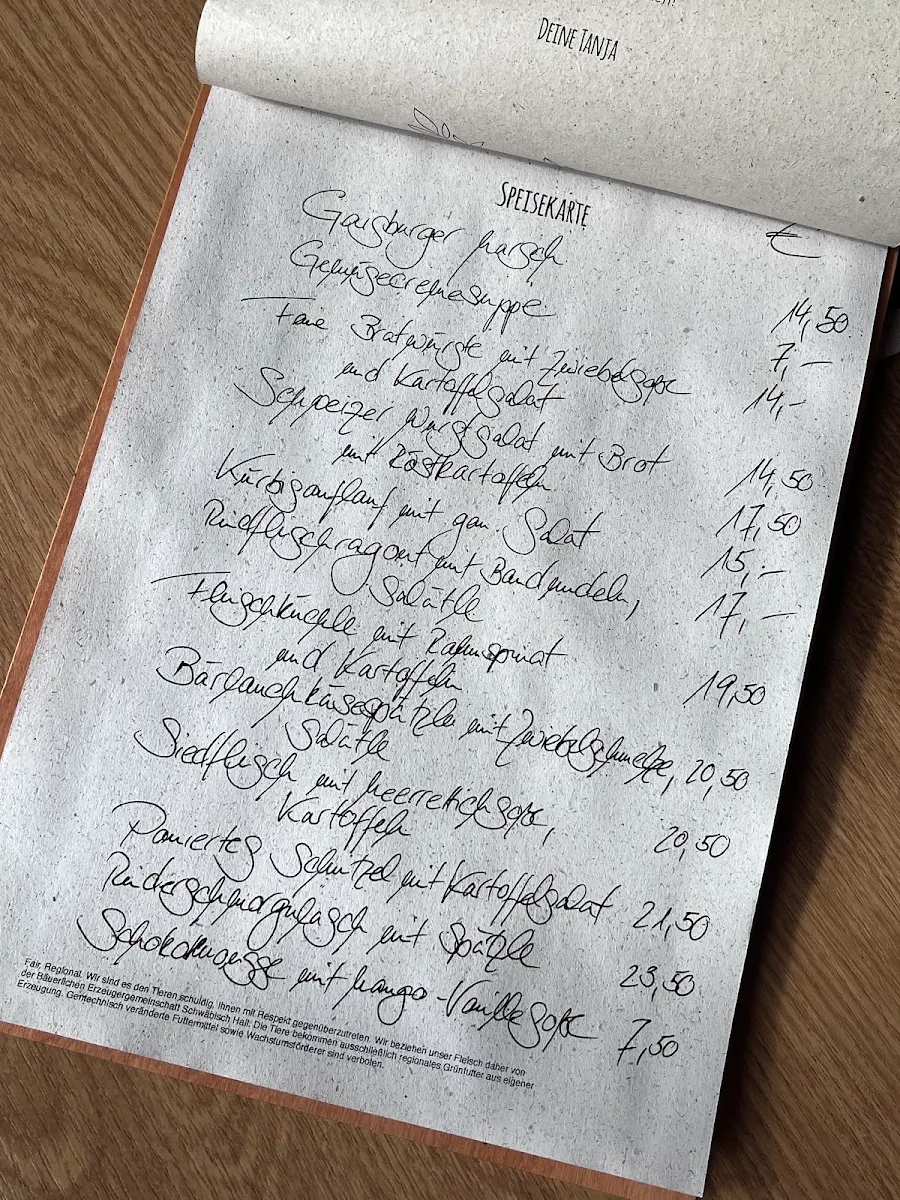 DEINE TANJA
SPEISEKARTE
€
Gaisburger Marsch 14,50
Gemüsecremesuppe 7,-
Feine Bratwürste mit Zwiebelsoße 14,-
und Kartoffelsalat
Schweizer Wurstsalat mit Brot 14,50
mit Röstkartoffeln 17,50
Kürbisauflauf mit gem. Salat 15,-
Rindfleischragout mit Bandnudeln, 17,-
Salätle
Fleischküchle mit Rahmspinat
und Kartoffeln 19,50
Bärlauchkäsespätzle mit Zwiebelschmelze, 20,50
Salätle
Siedfleisch mit Meerrettichsoße, 20,50
Kartoffeln
Paniertes Schnitzel mit Kartoffelsalat 21,50
Rinderschmorgulasch mit Spätzle 23,50
Schokomousse mit Mango-Vanillesoße 7,50
Fair. Regional. Wir sind es den Tieren schuldig, ihnen mit Respekt gegenüberzutreten. Wir beziehen unser Fleisch daher von
der Bäuerlichen Erzeugergemeinschaft Schwäbisch Hall: Die Tiere bekommen ausschließlich regionales Grünfutter aus eigener
Erzeugung. Gentechnisch veränderte Futtermittel sowie Wachstumsförderer sind verboten.